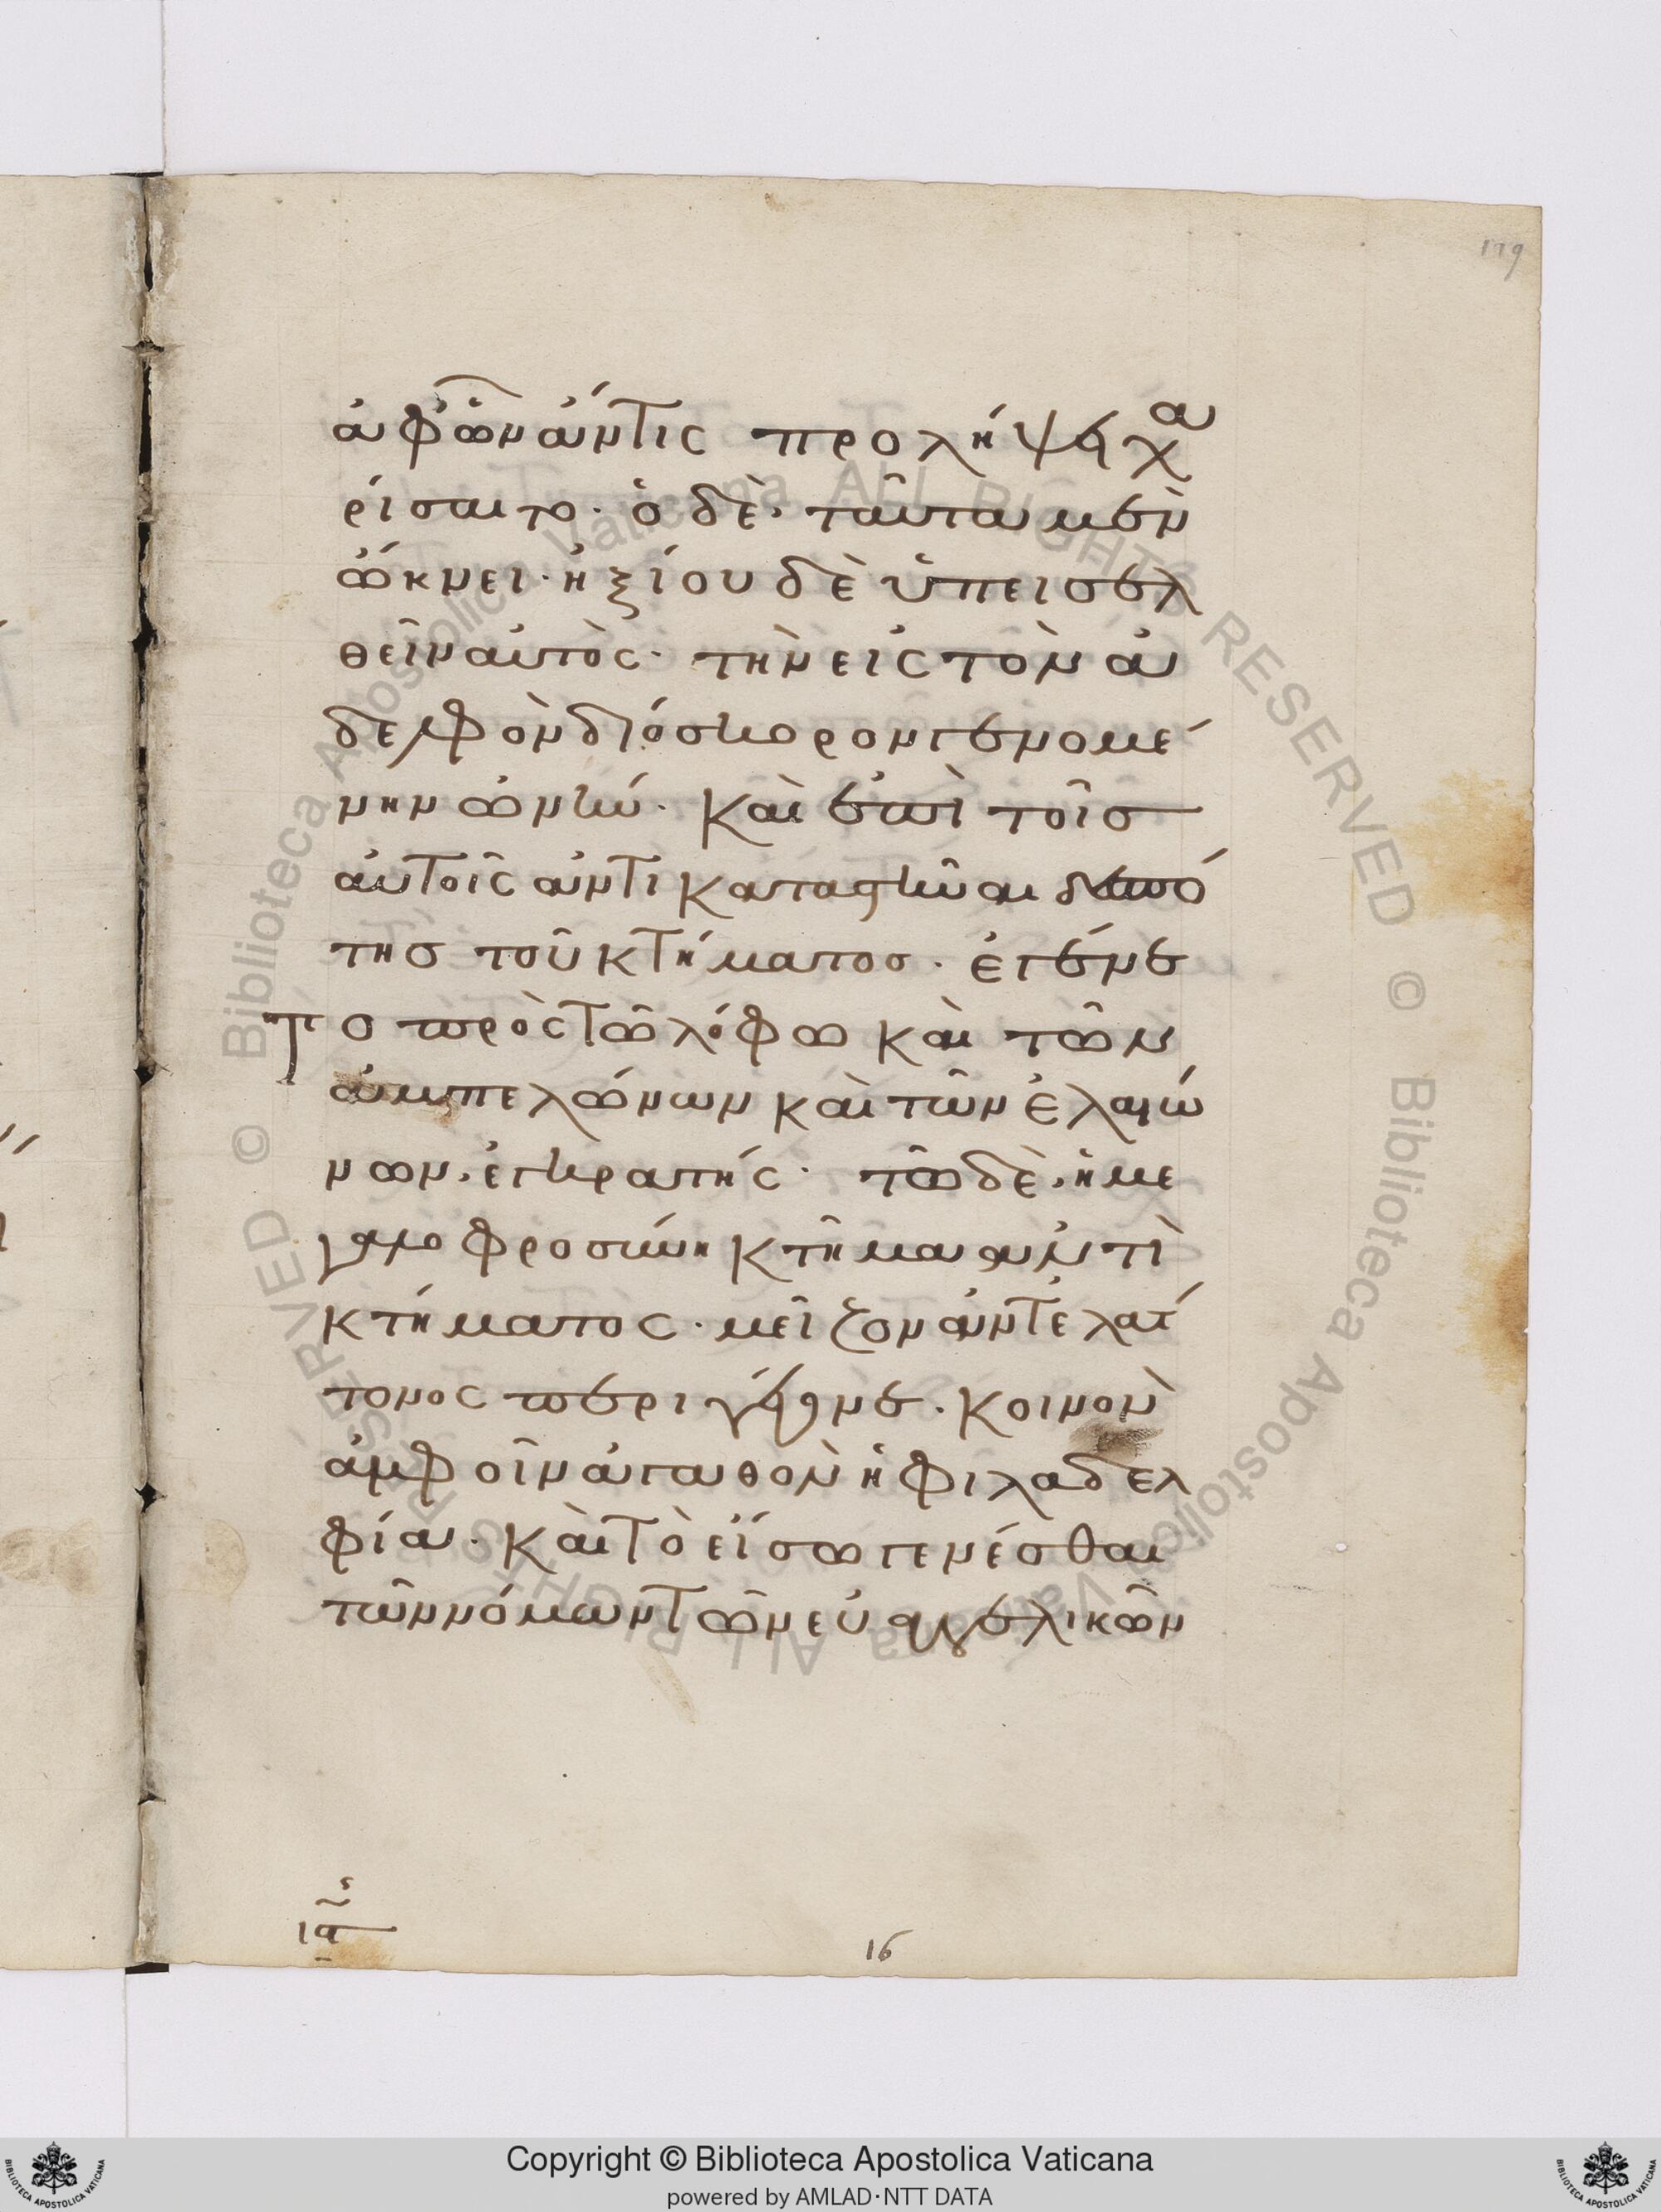 119
ἀφ' ὧν ἄν τις προλήψει χα
ρίσαιτο· ὁ δὲ, ταῦτα μὲν
ὤκνει· ἠξίου δὲ ὑπεισελ
θεῖν αὐτὸς· τὴν εἰς τὸν ἀ
δελφὸν διόσκορον γενομέ
νην ὠνήν· καὶ ἐπὶ τοῖσ
αὐτοῖς ἀντικαταστῆναι δεσπό
τησ τοῦ κτήματοσ· ἐγένε
το πρὸς τῶ λόφω καὶ τῶν
ἀμπελώνων καὶ τῶν ἐλαιώ
νων, ἐγκρατής· τῶ δὲ, ἡ με
γαλοφροσύνη κτῆμα ἀντὶ
κτήματος· μεῖζον ἀντ' ἐλάτ
τονος περιγέγονε· κοινὸν
ἀμφοῖν ἀγαθὸν ἡ φιλαδελ
φία· καὶ τὸ εἴσω γενέσθαι
τῶν νόμων τῶν εὐαγγελικῶν
ια
16
© Biblioteca Apostolica Vaticana ALL RIGHTS RESERVED © Biblioteca Apostolica Vaticana ALL RIGHTS RESERVED
Copyright © Biblioteca Apostolica Vaticana
powered by AMLAD·NTT DATA
BIBLIOTECA APOSTOLICA VATICANA
BIBLIOTECA APOSTOLICA VATICANA